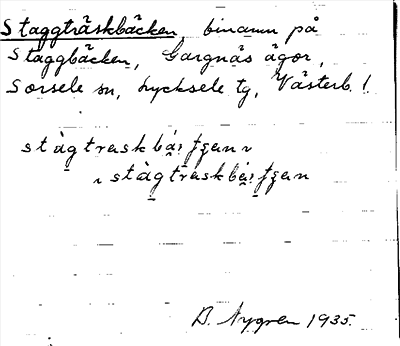 Staggträskbäcken, binamn på
Staggbäcken, Gargnäs ägor,
Sorsele sn, Lycksele tg, Västerb. l.
stàgtraskbá
stàgtraskbá
B. Nygren 1935.